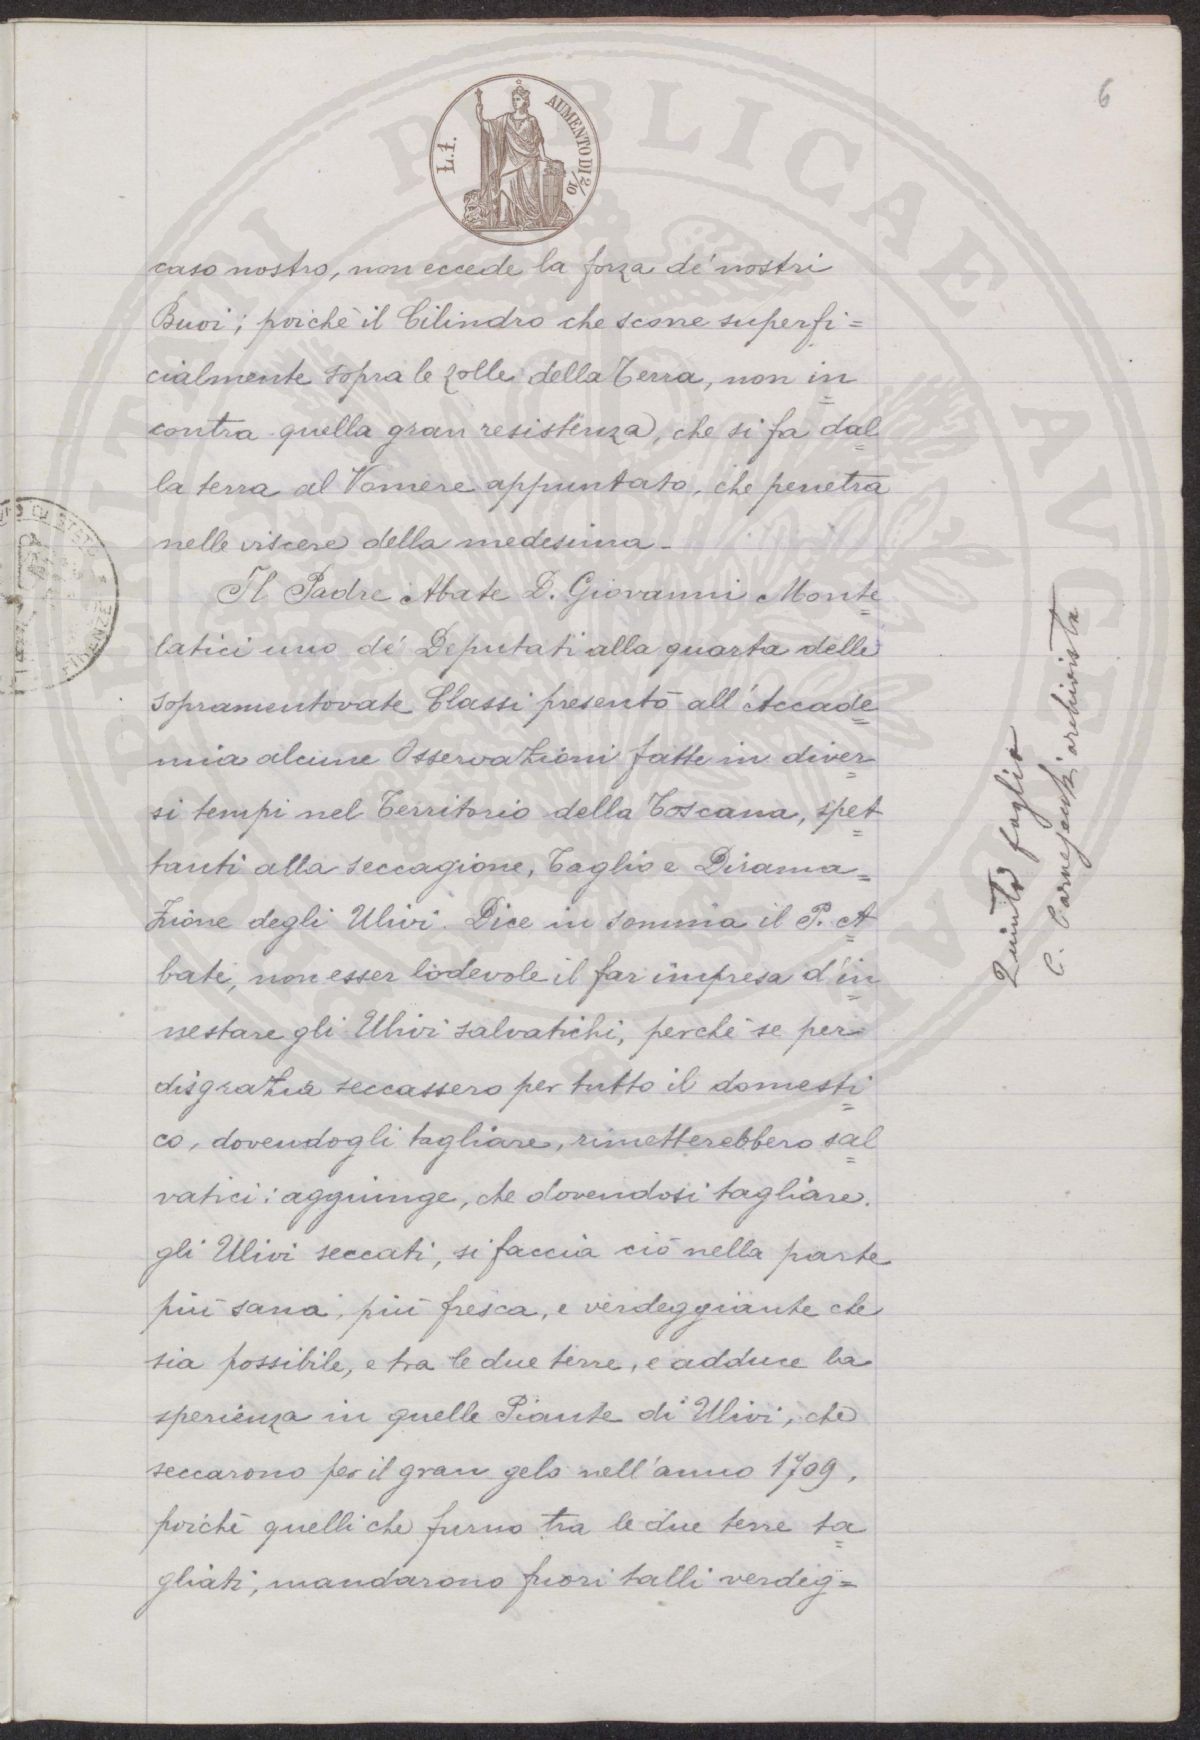 6
L. 1. AUMENTO DI 2/10
caso nostro, non eccede la forza de' nostri
Buoi; poichè il Cilindro che scorre superfi=
cialmente sopra le zolle della Terra, non in=
contra quella gran resistenza, che si fa dal=
la terra al Vomere appuntato, che penetra
nelle viscere della medesima.
Il Padre Abate D. Giovanni Monte=
latici uno de' Deputati alla quarta delle
sopramentovate Classi presentò all'Accade=
mia alcune Osservazioni fatte in diver=
si tempi nel Territorio della Toscana, spet=
tanti alla seccagione, Taglio e Dirama=
zione degli Ulivi. Dice in somma il P. A=
bate, non esser lodevole il far impresa d'in=
nestare gli Ulivi salvatichi, perchè se per
disgrazia seccassero per tutto il domesti=
co, dovendogli tagliare, rimetterebbero sal=
vatici: aggiunge, che dovendosi tagliare
gli Ulivi seccati, si faccia ciò nella parte
più sana, più fresca, e verdeggiante che
sia possibile, e tra le due terre, e adduce la
sperienza in quelle Piante di Ulivi, che
seccarono per il gran gelo nell'anno 1709,
poichè quelli che furno tra le due terre ta=
gliati, mandarono fuori talli verdeg=
Quinto foglio
C. Carnesecchi archivista